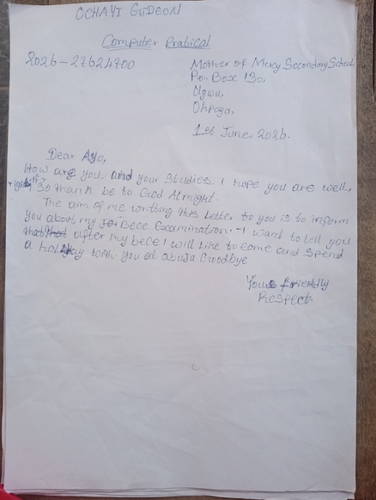 OCHAYI GIDEON
Computer Pratical
2026-27624700
Mother of Mercy Secondary School
P.o. Box 130,
Ugwu,
Ohpaga,
1st June, 2026.
Dear Ayo,
How are you, and your Studies. I hope you are well,
So thank be to God Almight.
The aim of me writing this Letter to you is to inform
you about my Bece Examination. I want to tell you
after my bece I will like to come and Spend
a holiday with you at abuja Goodbye
Yours friendly
Respect